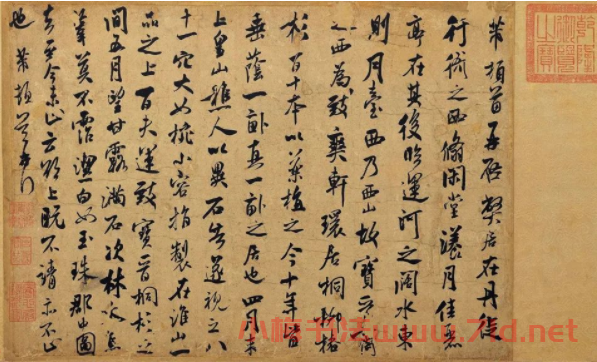 乾隆御覽之寶
芾頓首再啓弊居在丹徒
行衙之西翛閑堂漾月佳麗
亭在其後臨運河之闊水東
則月臺西乃西山故寶晉齋
之西為致爽軒環居桐柳椿
杉百十本以藥植之今十年皆
垂蔭一畝真一畝之居也四月末
上皇山樵人以異石告遂視之八
十一穴大如椀小容指製在淮山一
品之上百夫運致寶晉桐杉之
間五月望甘露滿石次林木焦
葦莫不霑潔白如玉珠郡中圖
去至今未止云欲上既不請亦不止
也芾頓首
小楷书法www.7ld.net